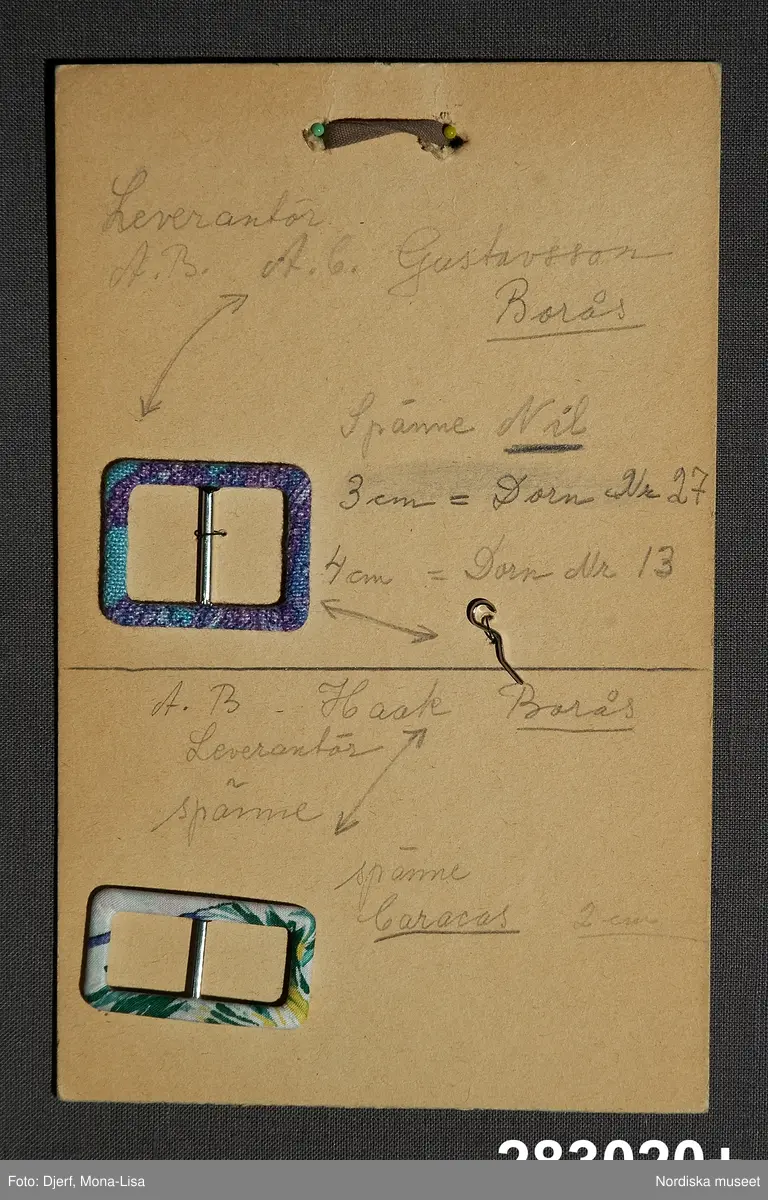 Leverantör
A.B. A.C. Gustavsson
Borås
Spänne Nil
3 cm = Dorn Nr 27
4 cm = Dorn Nr 13
A. B - Haak Borås
Leverantör
spänne
spänne
Caracas 2 cm
283020+
Foto: Djerf, Mona-Lisa Nordiska museet